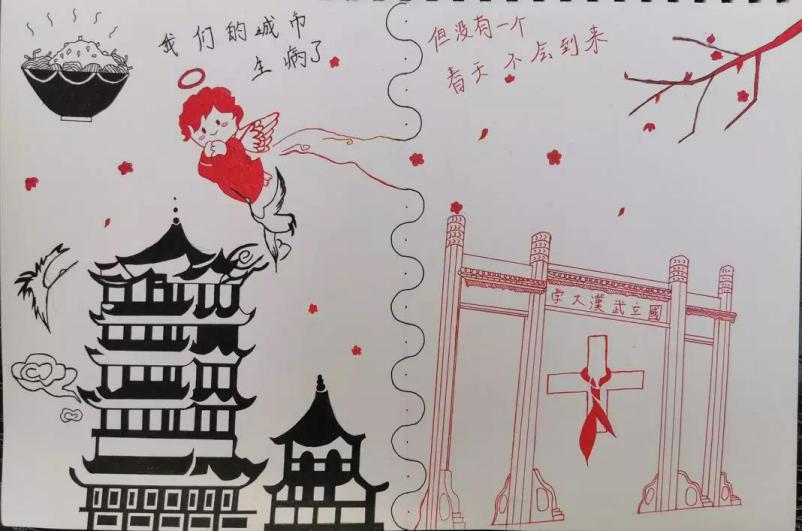 我们的城市
生病了
但没有一个
春天不会到来
學大漢武立國